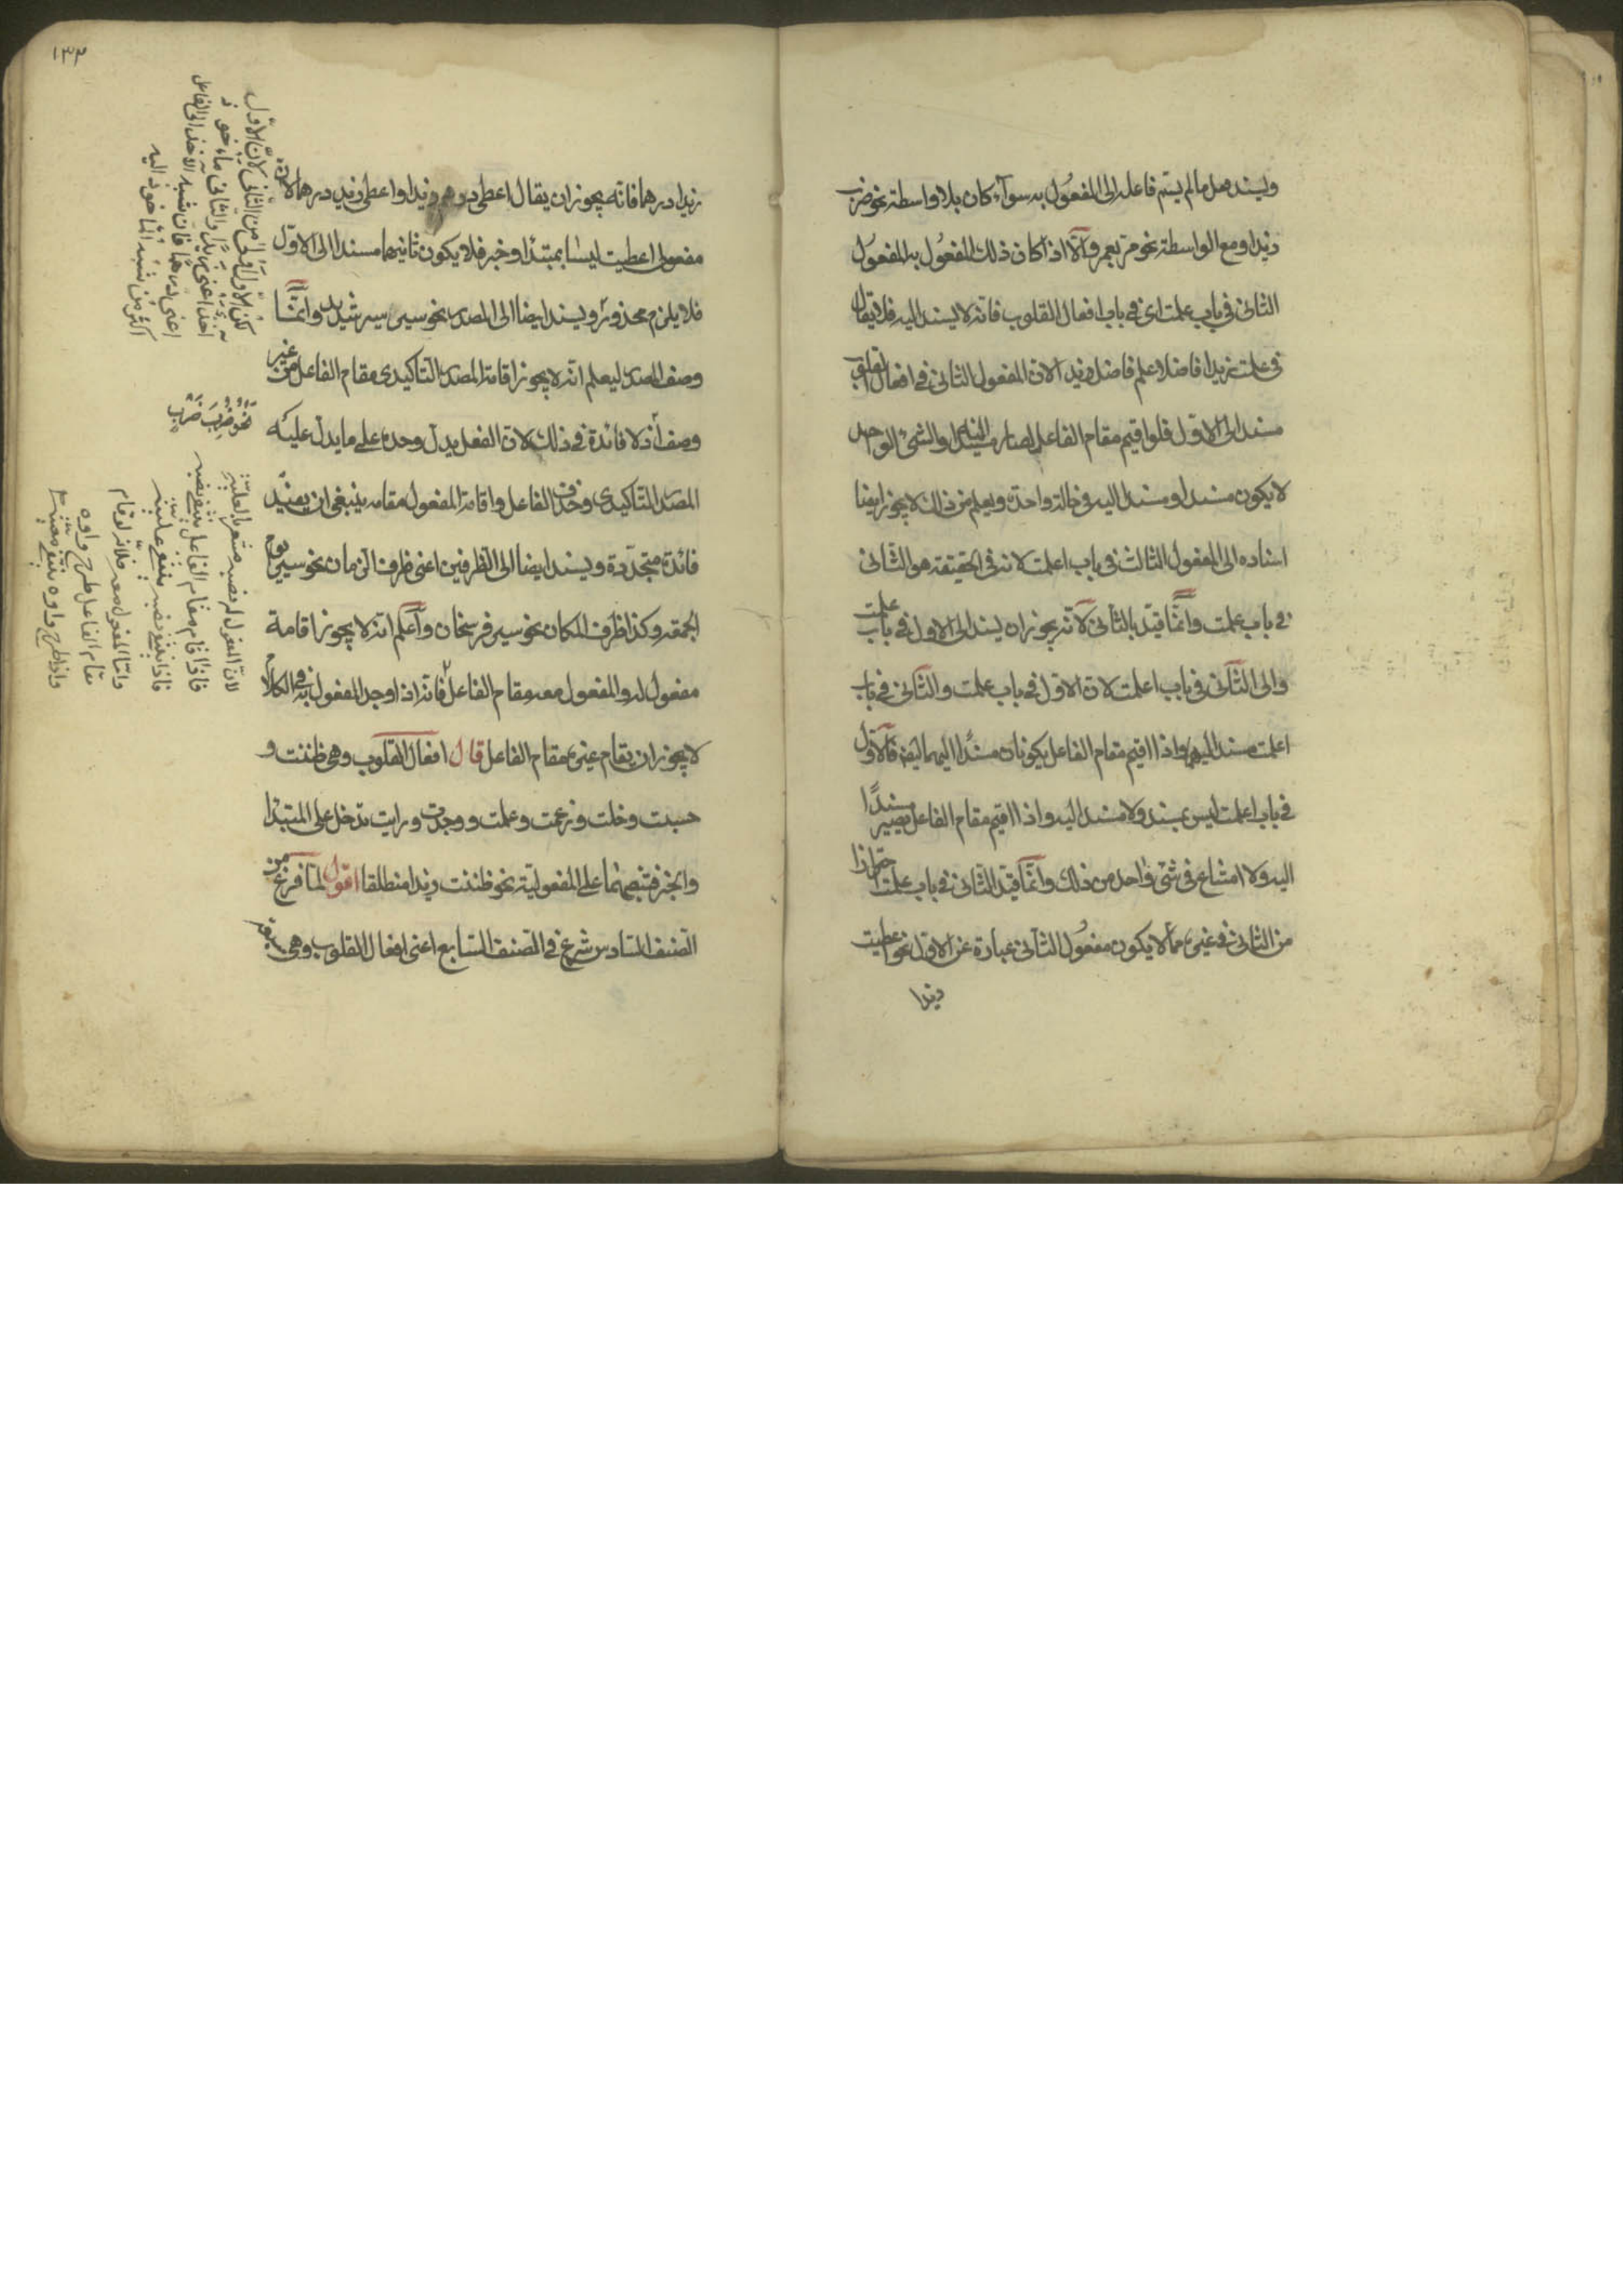 ويسند فعل ما لم يسم فاعله الى المفعول به سوآء كان بلا واسطة نحو ضرب
زيد او مع الواسطة نحو مر بعمرو الا اذا كان ذلك المفعول به المفعول
الثانى فى باب علمت اى فى باب افعال القلوب فانه لا يسند اليه فلا يقال
فى علمت زيدا فاضلا علم فاضل زيدا لان المفعول الثانى فى افعال القلوب
مسند الى الاول فلو اقيم مقام الفاعل لصار مسندا اليه والشئ الواحد
لا يكون مسندا ومسندا اليه فى حالة واحدة ويعلم من ذلك لا يجوز ايضا
اسناده الى المفعول الثالث فى باب اعلمت لانه فى الحقيقة هو الثانى
فى باب علمت وانما قيد بالثانى لانه يجوز ان يسند الى الاول فى باب علمت
والى الثانى فى باب اعلمت لان الاول فى باب علمت والثانى فى باب
اعلمت مسند اليهما واذا اقيم مقام الفاعل يكونان مسندا اليهما ايضا فالاول
فى باب اعلمت ليس بمسند ولا مسند اليه واذا اقيم مقام الفاعل يصير مسندا
اليه ولا امتناع فى شئ واحد من ذلك وانما قيد الثانى فى باب علمت احترازا
من الثانى فى غيره مما لا يكون مفعول الثانى عبارة عن الاول نحو اعطيت
زيدا
١٣٣
زيدا درهما فانه يجوز ان يقال اعطى درهم زيدا واعطى زيد درهما لان
مفعولى اعطيت ليسا بمبتدا وخبر فلا يكون ثانيهما مسندا الى الاول
فلا يلزم محذور ويسند ايضا الى المصدر نحو سير سير شديد وانما
وصف المصدر ليعلم انه لا يجوز اقامة المصدر التأكيدى مقام الفاعل من غير
وصف اذ لا فائدة فى ذلك لان الفعل يدل وحده على ما يدل عليه
المصدر التأكيدى وحذف الفاعل واقامة المفعول مقامه ينبغى ان يفيد
فائدة متجددة ويسند ايضا الى الظرفين اعنى ظرف الزمان نحو سير يوم
الجمعة وكذا ظرف المكان نحو سير فرسخان واعلم انه لا يجوز اقامة
مفعول له والمفعول معه مقام الفاعل فانه اذا وجد المفعول به فى الكلام
لا يجوز ان يقام غيره مقام الفاعل قال افعال القلوب وهى ظننت و
حسبت وخلت وزعمت وعلمت ووجدت ورايت تدخل على المبتدا
والخبر فتنصبهما على المفعولية نحو ظننت زيدا منطلقا اقول لما فرغ من
الصنف السادس شرع فى الصنف السابع اعنى افعال القلوب وهى سبعة
لكن الاول اولى من الثانى لان الاول
آخذ اعنى زيدا والثانى مأخوذ
اعنى درهما فان شبه الآخذ الى الفاعل
اكثر من شبه المأخوذ اليه
نحو ضرب ضرب
لان المفعول له نصبه مشعر بالعلية
فاذا قام مقام الفاعل ينتفى نصبه
فاذا ينتفى نصبه ينتفى عليته
واما المفعول معه فلانه لو قام
مقام الفاعل طرح واوه
واذا طرح واوه ينتفى معيته